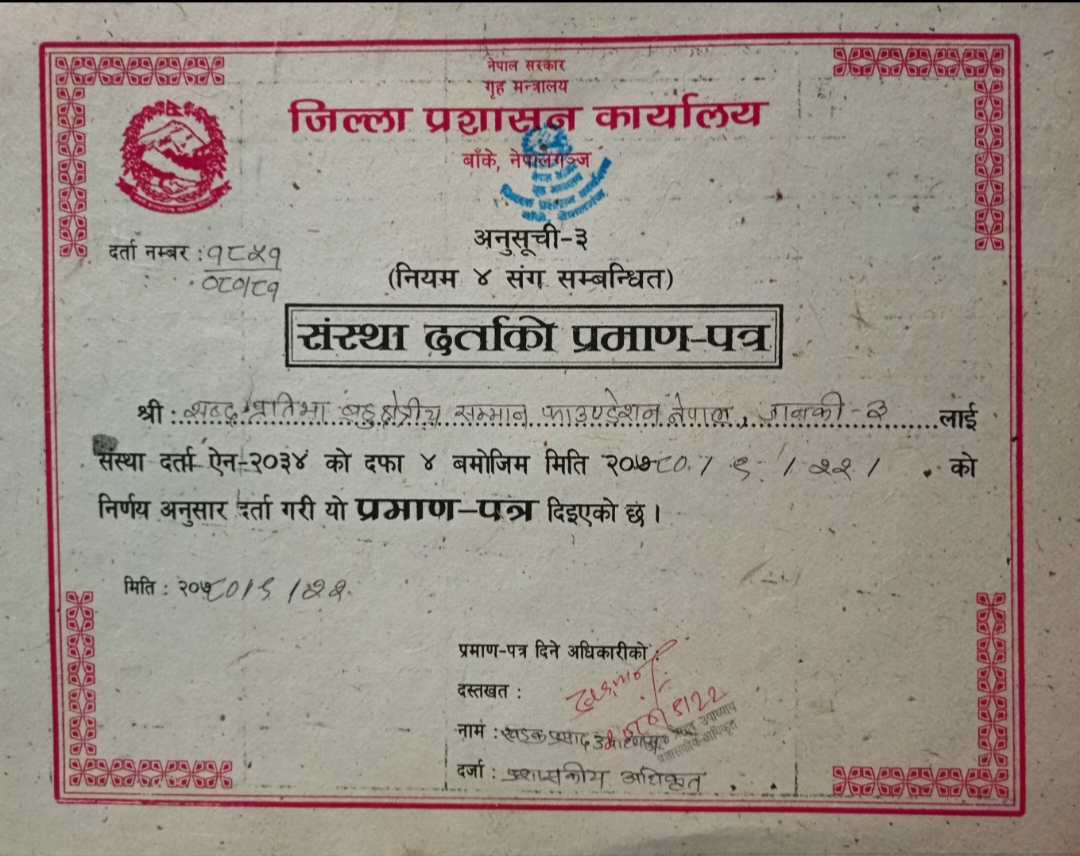 नेपाल सरकार
गृह मन्त्रालय
जिल्ला प्रशासन कार्यालय
बाँके, नेपालगञ्ज
अनुसूची-३
दर्ता नम्बर : १८५१
०८०/८१
(नियम ४ संग सम्बन्धित)
संस्था दर्ताको प्रमाण-पत्र
श्री : शब्द प्रतिभा बहुक्षेत्रीय सम्मान फाउण्डेशन नेपाल, जानकी-३ लाई
संस्था दर्ता ऐन-२०३४ को दफा ४ बमोजिम मिति २०७८०/९/२२/ को
निर्णय अनुसार दर्ता गरी यो प्रमाण-पत्र दिइएको छ।
मिति : २०७८०/९/२२
प्रमाण-पत्र दिने अधिकारीको
दस्तखत :
नाम : खडक प्रसाद
दर्जा : प्रशासकीय अधिकृत